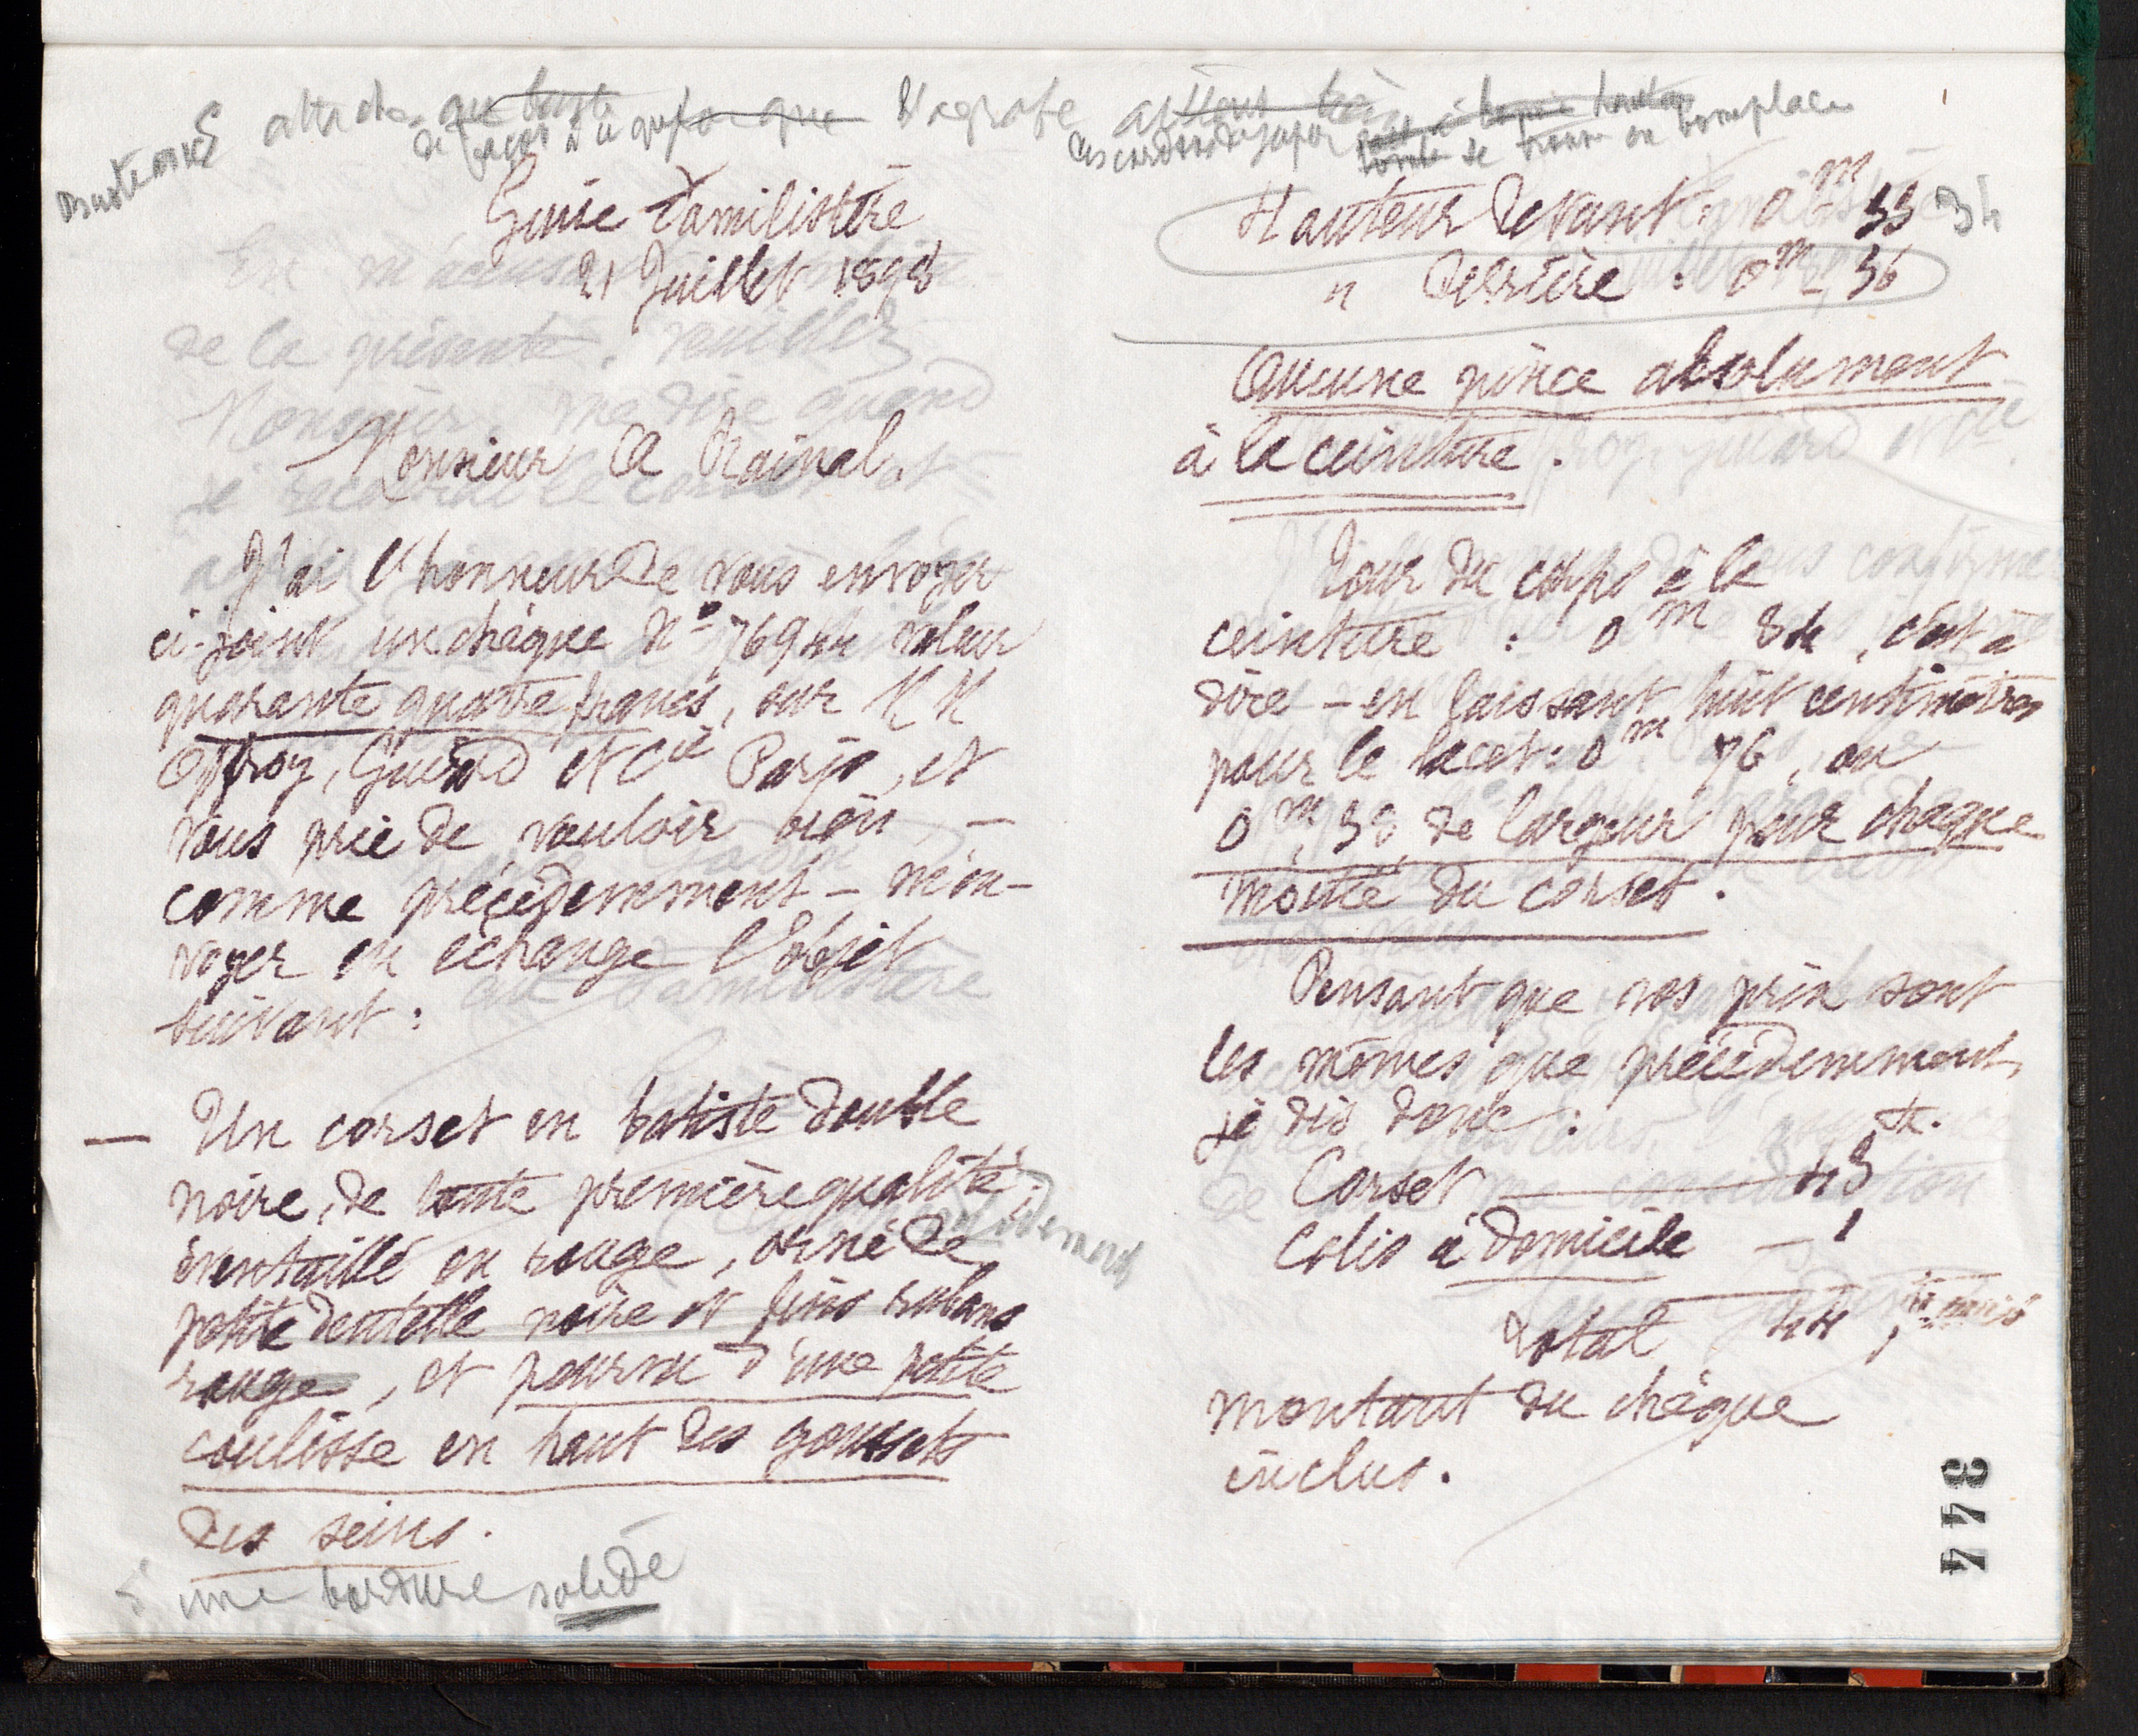 attache au buste de façon à ce que l'agrafe
des cordons de jupon
se trouve en
Guise Familistère
21 Juillet 1898
Monsieur A Rainal,
J'ai l'honneur de vous envoyer
ci-joint un chèque N° 76944 valeur
quarante quatre francs, sur MM
Offroy, Guiard et Cie Paris, et
vous prie de vouloir bien –
comme précédemment – m'en-
voyer en échange l'objet
suivant :
— Un corset en batiste double
noire, de toute première qualité,
éventaillé en rouge, orné de
petite dentelle noire et fins rubans
rouge, et pourvu d'une petite
coulisse en haut des goussets
des seins.
une bordure solide
Hauteur devant : 0m 33 34
" derrière : 0m 36
Aucune pince absolument
à la ceinture.
Tour du corps à la
ceinture : 0m 84, c'est à
dire – en laissant huit centimètres
pour le lacet : 0m 76, ou
0m,38 de largeur pour chaque
moitié du corset.
Pensant que vos prix sont
les mêmes que précédemment,
je dis donc : fr.
Corset — 43
Colis à domicile — 1
Total 44,
montant du chèque
inclus.
344